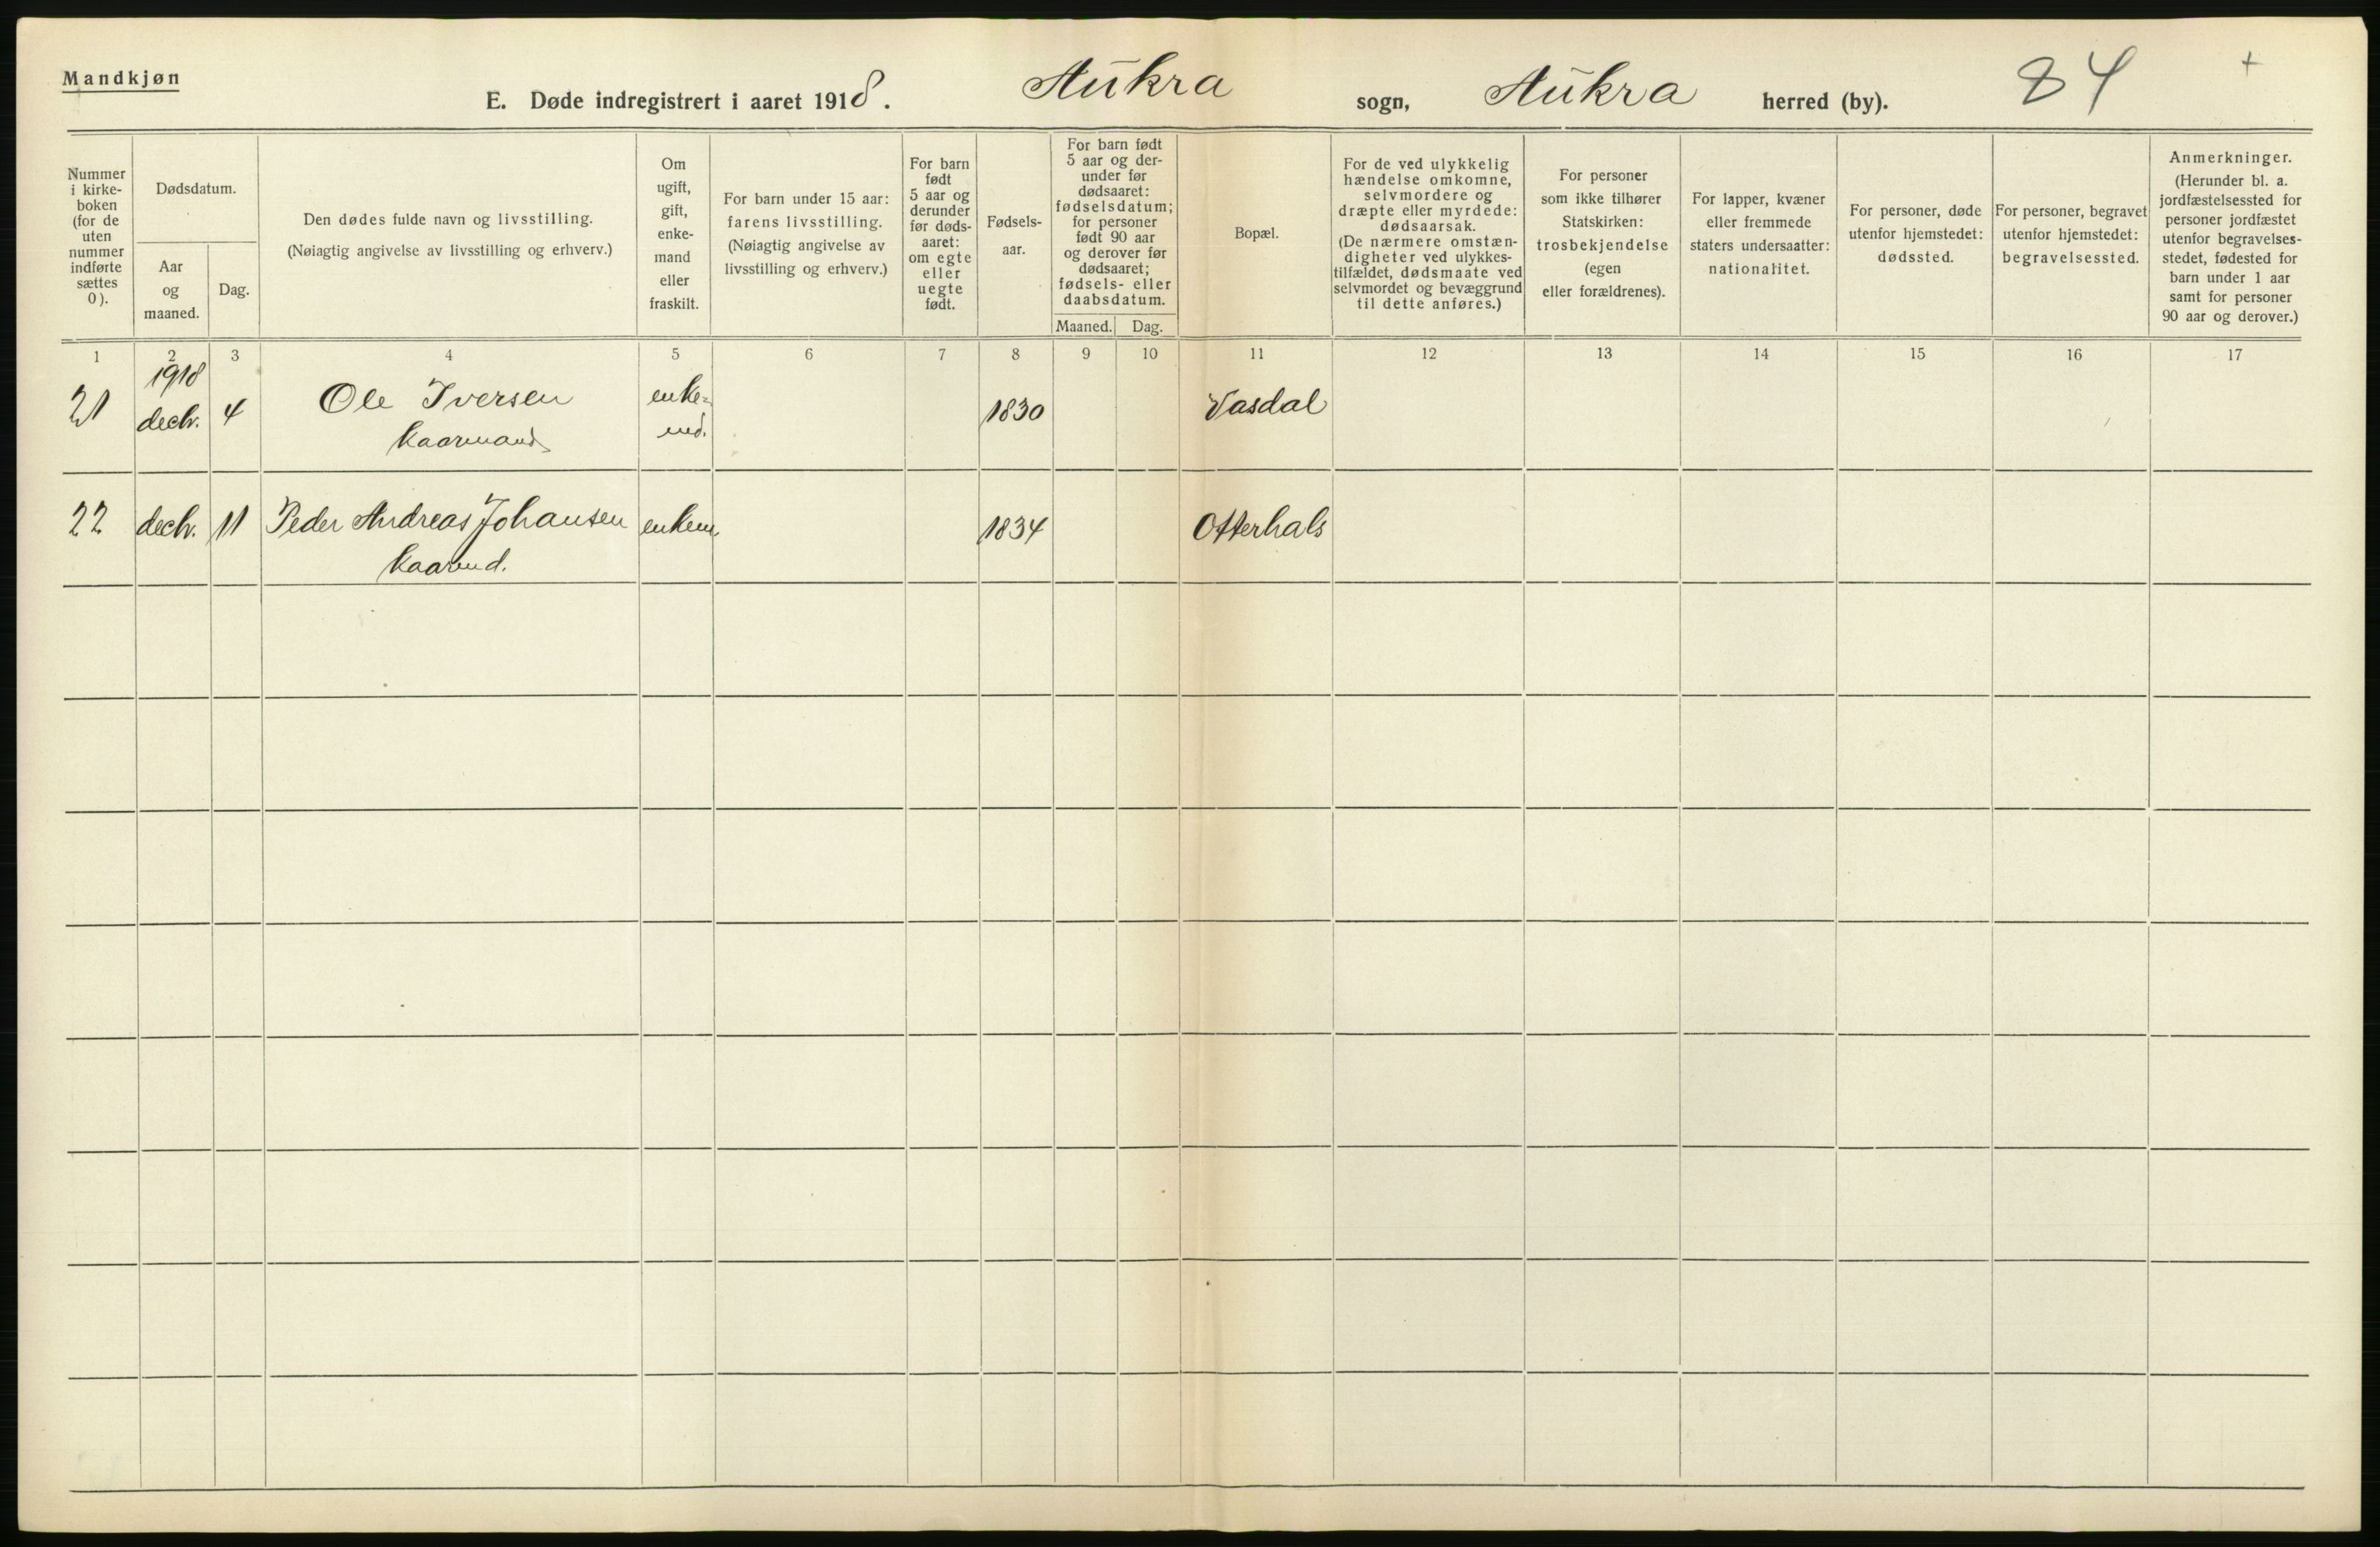 Mandkjøn
E. Døde indregistrert i aaret 1918. Aukra sogn, Aukra herred (by). 84 +
Nummer
i kirke-
boken
(for de
uten
nummer
indførte
sættes
0).
Dødsdatum.
Aar
og
maaned.
Dag.
Den dødes fulde navn og livsstilling.
(Nøiagtig angivelse av livsstilling og erhverv.)
Om
ugift,
gift,
enke-
mand
eller
fraskilt.
For barn under 15 aar:
farens livsstilling.
(Nøiagtig angivelse av
livsstilling og erhverv.)
For barn
født
5 aar og
derunder
før døds-
aaret:
om egte
eller
uegte
født.
Fødsels-
aar.
For barn født
5 aar og der-
under før
dødsaaret:
fødselsdatum;
for personer
født 90 aar
og derover før
dødsaaret;
fødsels- eller
daabsdatum.
Maaned. Dag.
Bopæl.
For de ved ulykkelig
hændelse omkomne,
selvmordere og
dræpte eller myrdede:
dødsaarsak.
(De nærmere omstæn-
digheter ved ulykkes-
tilfældet, dødsmaate ved
selvmordet og bevæggrund
til dette anføres.)
For personer
som ikke tilhører
Statskirken:
trosbekjendelse
(egen
eller forældrenes).
For lapper, kvæner
eller fremmede
staters undersaatter:
nationalitet.
For personer, døde
utenfor hjemstedet:
dødssted.
For personer, begravet
utenfor hjemstedet:
begravelsessted.
Anmerkninger.
(Herunder bl. a.
jordfæstelsessted for
personer jordfæstet
utenfor begravelses-
stedet, fødested for
barn under 1 aar
samt for personer
90 aar og derover.)
1 2 3 4 5 6 7 8 9 10 11 12 13 14 15 16 17
1918
21 decbr. 4 Ole Iversen enke- 1830 Vasdal
kaarmand md.
22 decbr. 11 Peder Andreas Johansen enkem. 1834 Otterhals
kaarmd.